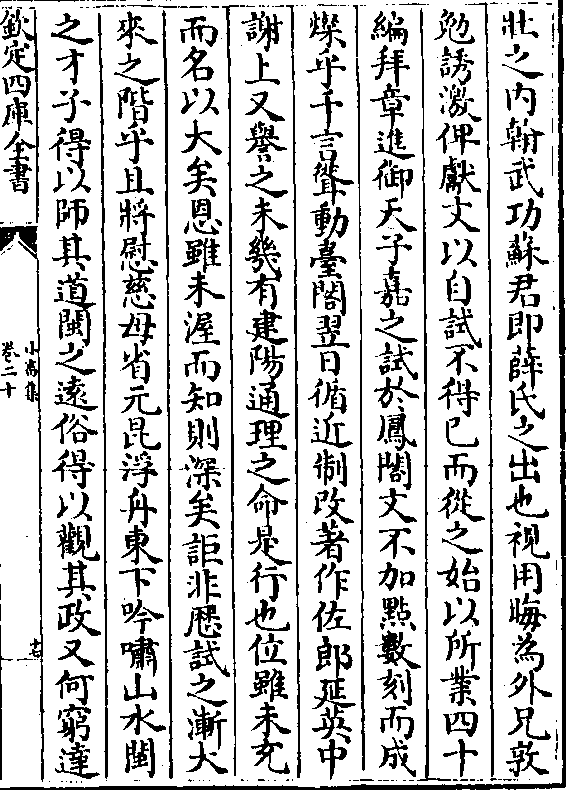 壯之内翰武功蘇君即薛氏之出也視用晦為外兄敦
勉誘激俾獻文以自試不得已而從之始以所業四十
編拜章進御天子嘉之試於鳳閣文不加點數刻而成
燦乎千言聳動臺閣翌日循近制改著作佐郎延英中
謝上又譽之未幾有建陽通理之命是行也位雖未充
而名以大矣恩雖未渥而知則深矣詎非歴試之漸大
來之階乎且將慰慈母省元昆浮舟東下吟嘯山水閩
之才子得以師其道閩之遠俗得以觀其政又何窮達
欽定四庫全書
小畜集
卷二十